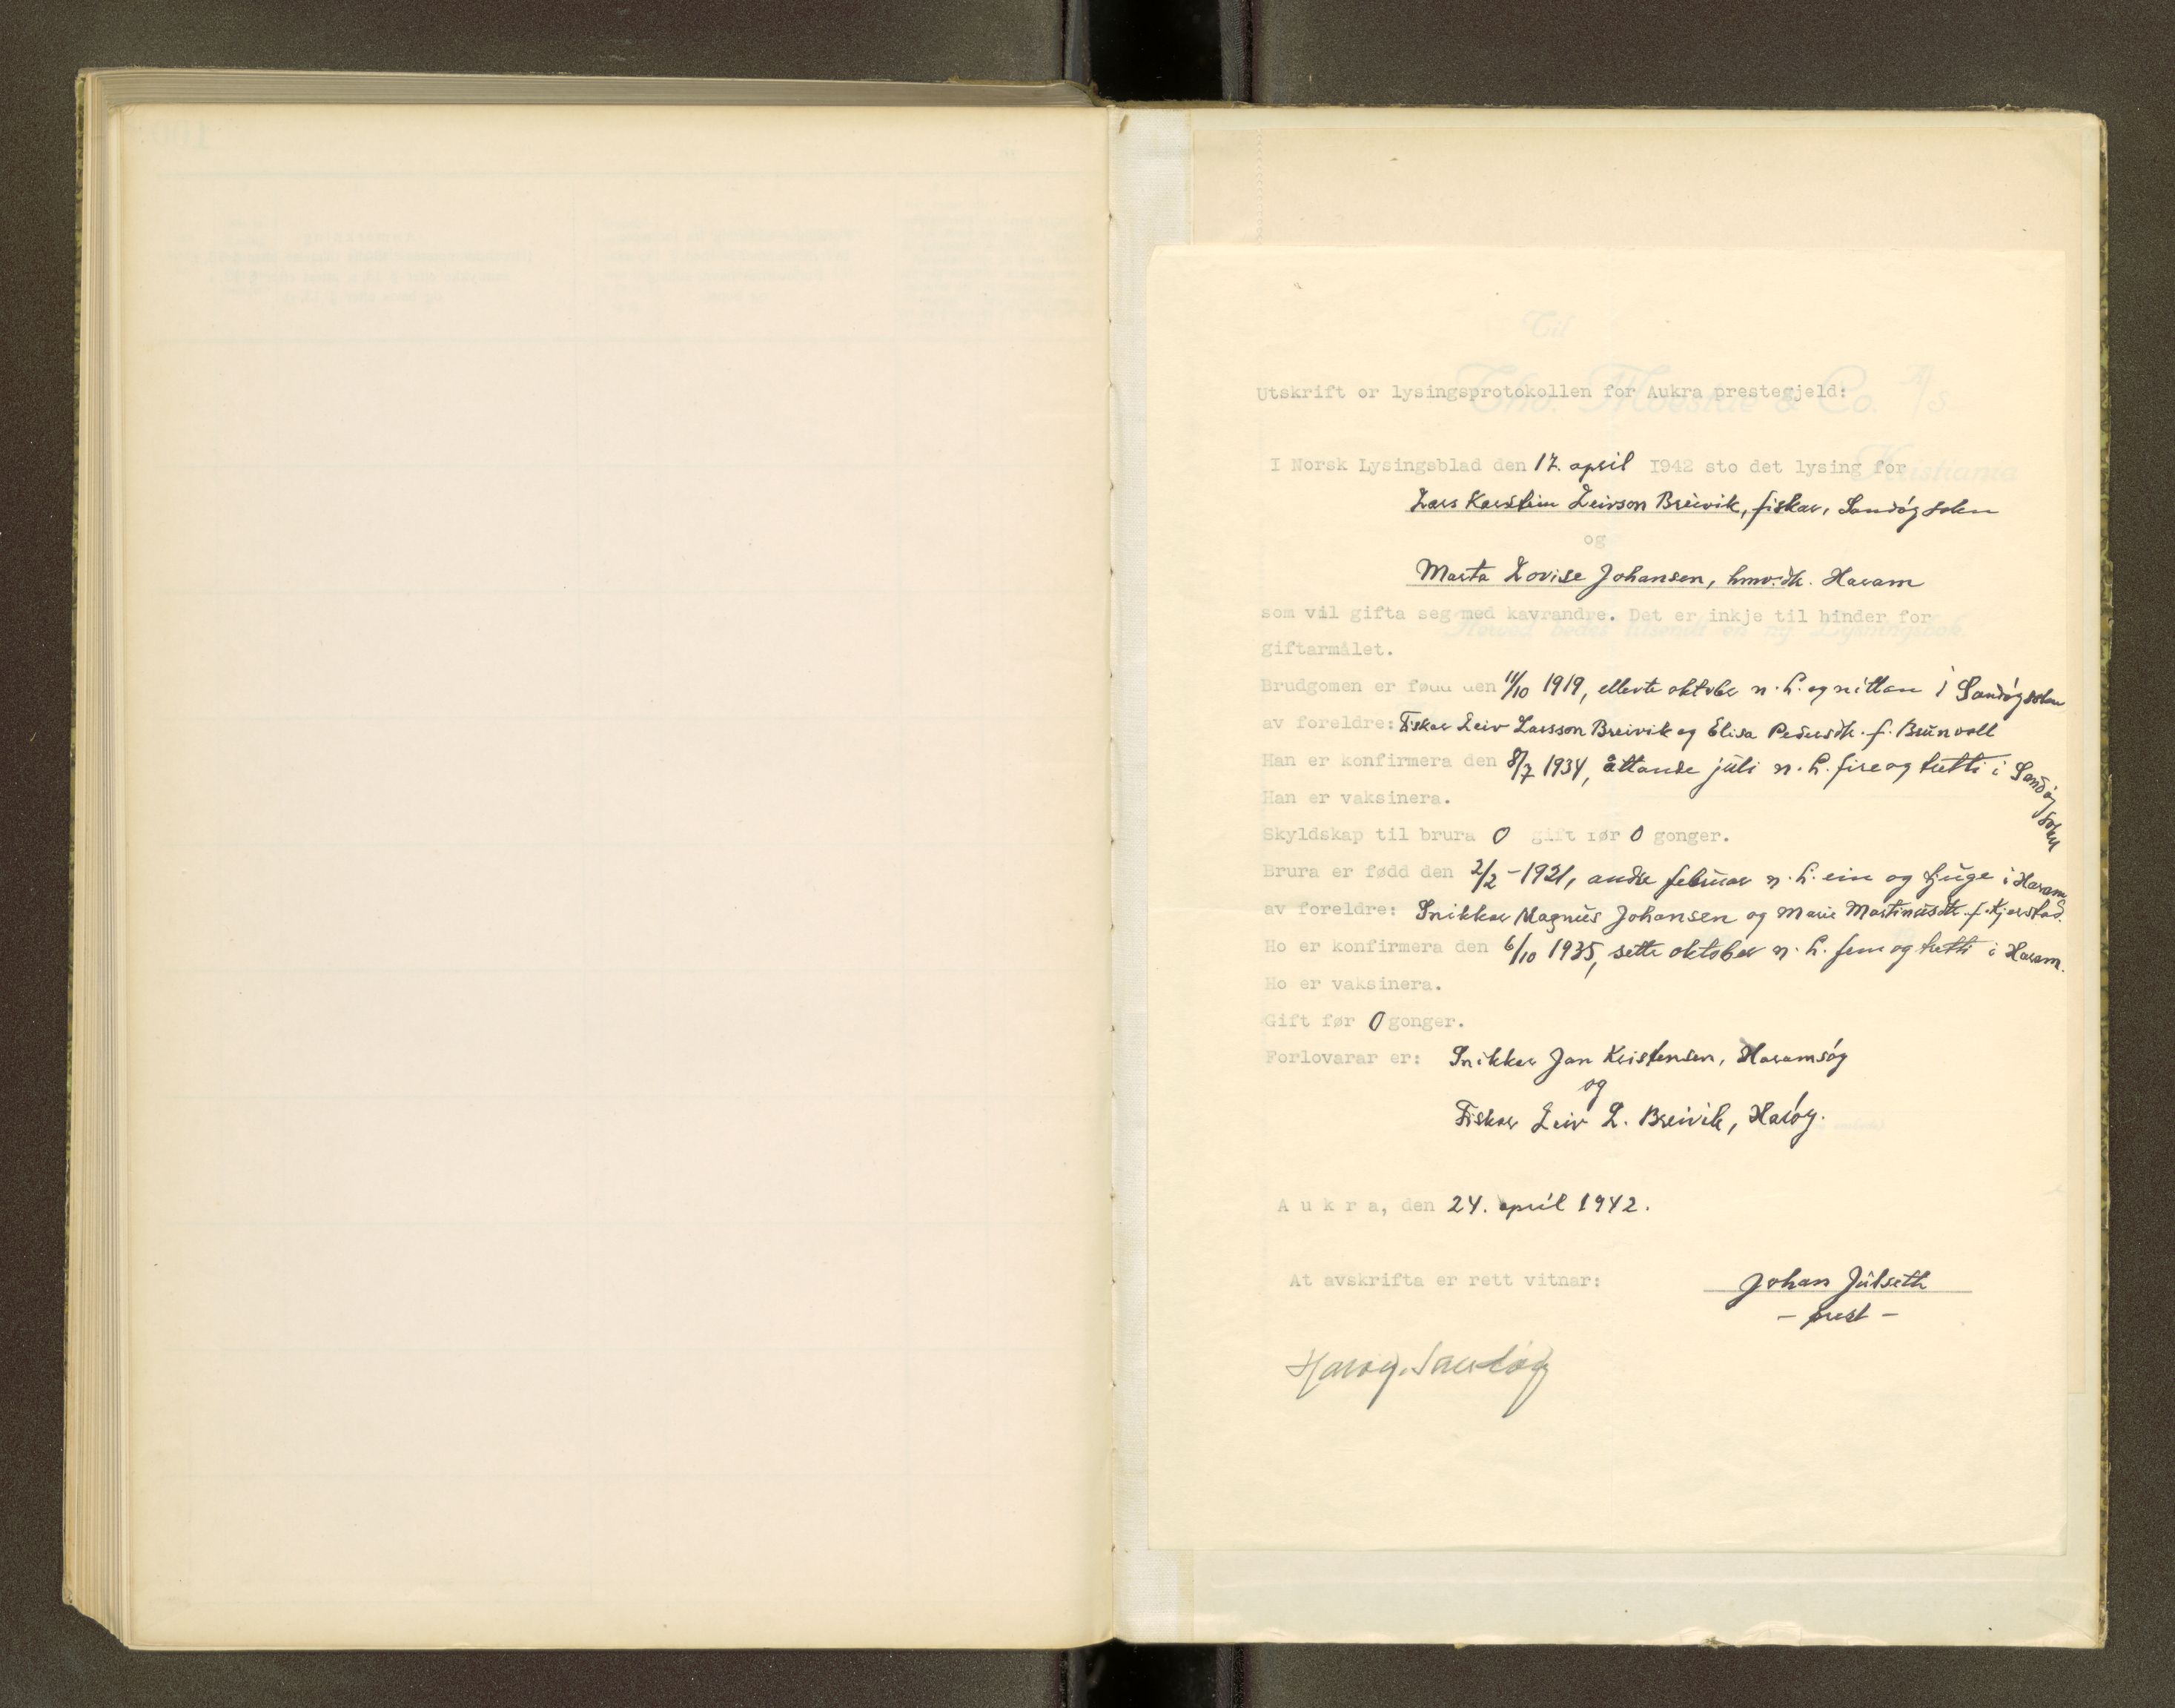 Utskrift or lysingsprotokollen for Aukra prestegjeld:
I Norsk Lysingsblad den 17. april 1942 sto det lysing for
Lars Karstein Leivson Breivik, fiskar, Sandøy sokn
og
Marta Lovise Johansen, hmv.dt. Haram
som vil gifta seg med kavrandre. Det er inkje til hinder for
giftarmålet.
Brudgomen er fødd den 11/10 1919, ellevte oktober n.h. og nittan i Sandøy sokn
av foreldre: Fiskar Leiv Larsson Breivik og Elisa Pedersdt. f. Brunvoll
Han er konfirmera den 8/7 1934, åttande juli n.h. fire og tretti i Sandøy sokn
Han er vaksinera.
Skyldskap til brura 0 gift før 0 gonger.
Brura er fødd den 2/2 - 1921, andre februar n.h. ein og tjuge i Haram
av foreldre: Snikkar Magnus Johansen og Marie Martinusdt. f. Kjerstad.
Ho er konfirmera den 6/10 1935, sette oktober n.h. fem og tretti i Haram.
Ho er vaksinera.
Gift før 0 gonger.
Forlovarar er: Snikkar Jan Kristensen, Haramsøy
og
Fiskar Leiv L. Breivik, Harøy.
Aukra, den 24. april 1942.
At avskrifta er rett vitnar: Johan Julseth
- prest -
Harøy, Sandøy